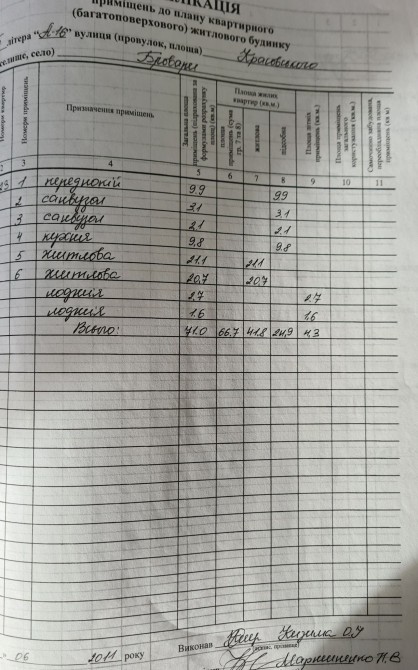 ІКАЦІЯ
приміщень до плану квартирного
(багатоповерхового) житлового будинку
літера "А-16" вулиця (провулок, площа) Красовського
селище, село) Бровари
Номери квартир
Номери приміщень
Призначення приміщень
Загальна площа приміщень (підрахована за формулами розрахунку площ) (кв.м)
Площа жилих квартир (кв.м.)
площа приміщень (сума гр. 7 та 8)
житлова
підсобна
Площа літніх приміщень (кв.м.)
Площа приміщень загального користування (кв.м)
Самочинно забудована, переобладнана площа приміщень (кв.м)
2 3 4 5 6 7 8 9 10 11
1 передпокій 9.9 9.9
2 санвузол 3.1 3.1
3 санвузол 2.1 2.1
4 кухня 9.8 9.8
5 житлова 21.1 21.1
6 житлова 20.7 20.7
лоджія 2.7 2.7
лоджія 1.6 1.6
Всього: 71.0 66.7 41.8 24,9 4,3
Виконав
06 2011 року
(підпис, прізвище)